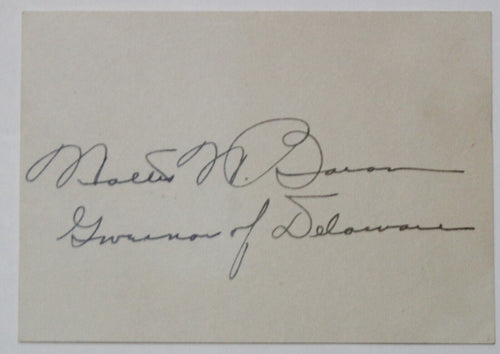 Walter W. Bacon
Governor of Delaware